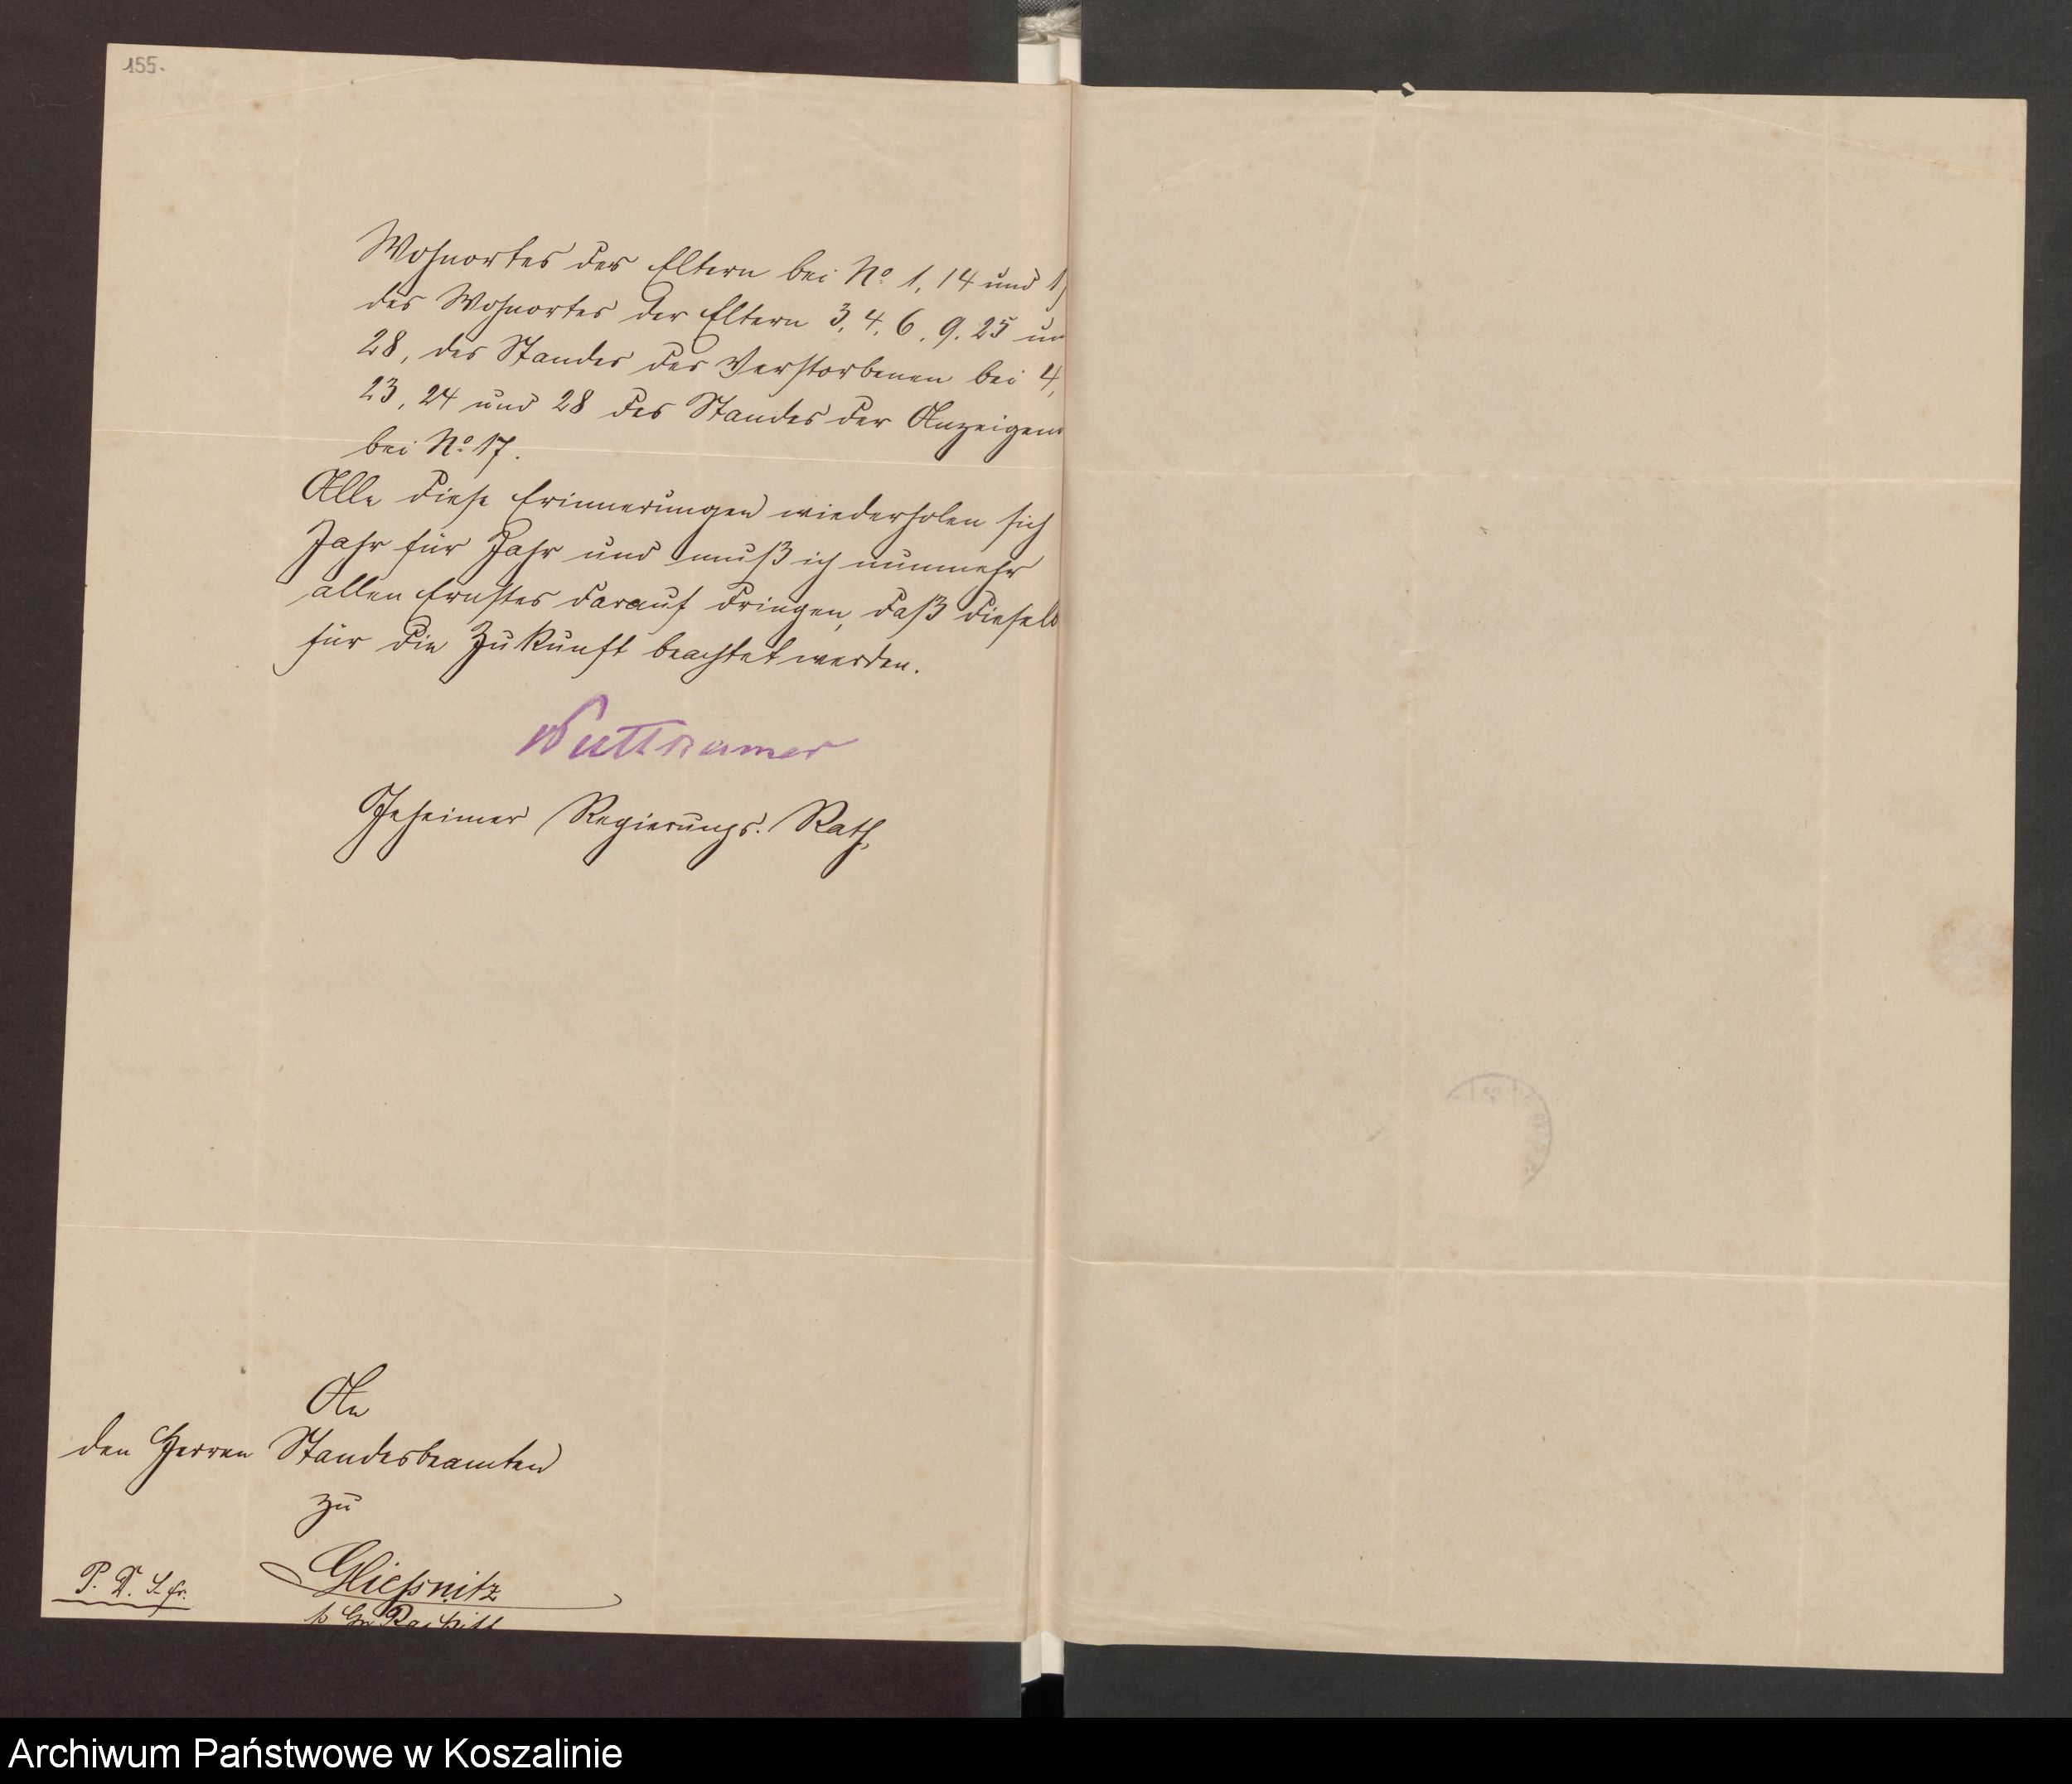 155.
Wohnortes der Eltern bei No. 1, 14 und
des Wohnortes der Eltern 3, 4, 6, 9, 25 un
28, des Standes der Verstorbenen bei 4,
23, 24 und 28 des Standes der Anzeigen
bei No. 17.
Alle diese Erinnerungen wiederholen sich
Jahr für Jahr und muß ich nunmehr
allen Ernstes darauf dringen, daß diesel
für die Zukunft beachtet werden.
Puttkamer
Geheimer Regierungs-Rath.
An
den Herren Standesbeamten
zu
Gliessnitz
Archiwum Państwowe w Koszalinie